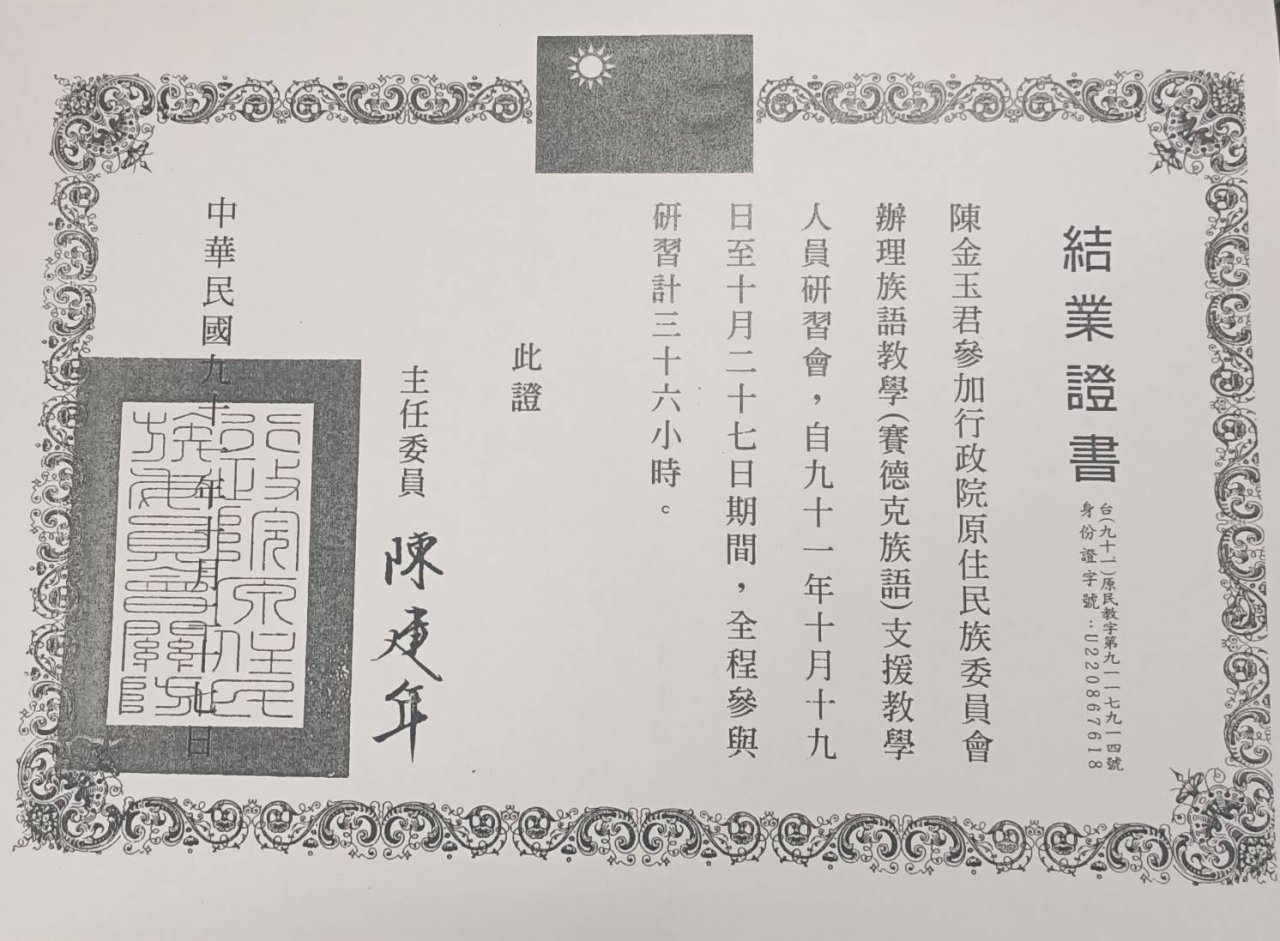 結業證書
台(九十一)原民教字第九一一七九一四號
身份證字號:U220867618
陳金玉君參加行政院原住民族委員會
辦理族語教學(賽德克族語)支援教學
人員研習會,自九十一年十月十九
日至十月二十七日期間,全程參與
研習計三十六小時。
此證
主任委員 陳建年
中華民國九十一年十月二十七日
行政院原住民
族委員會關防